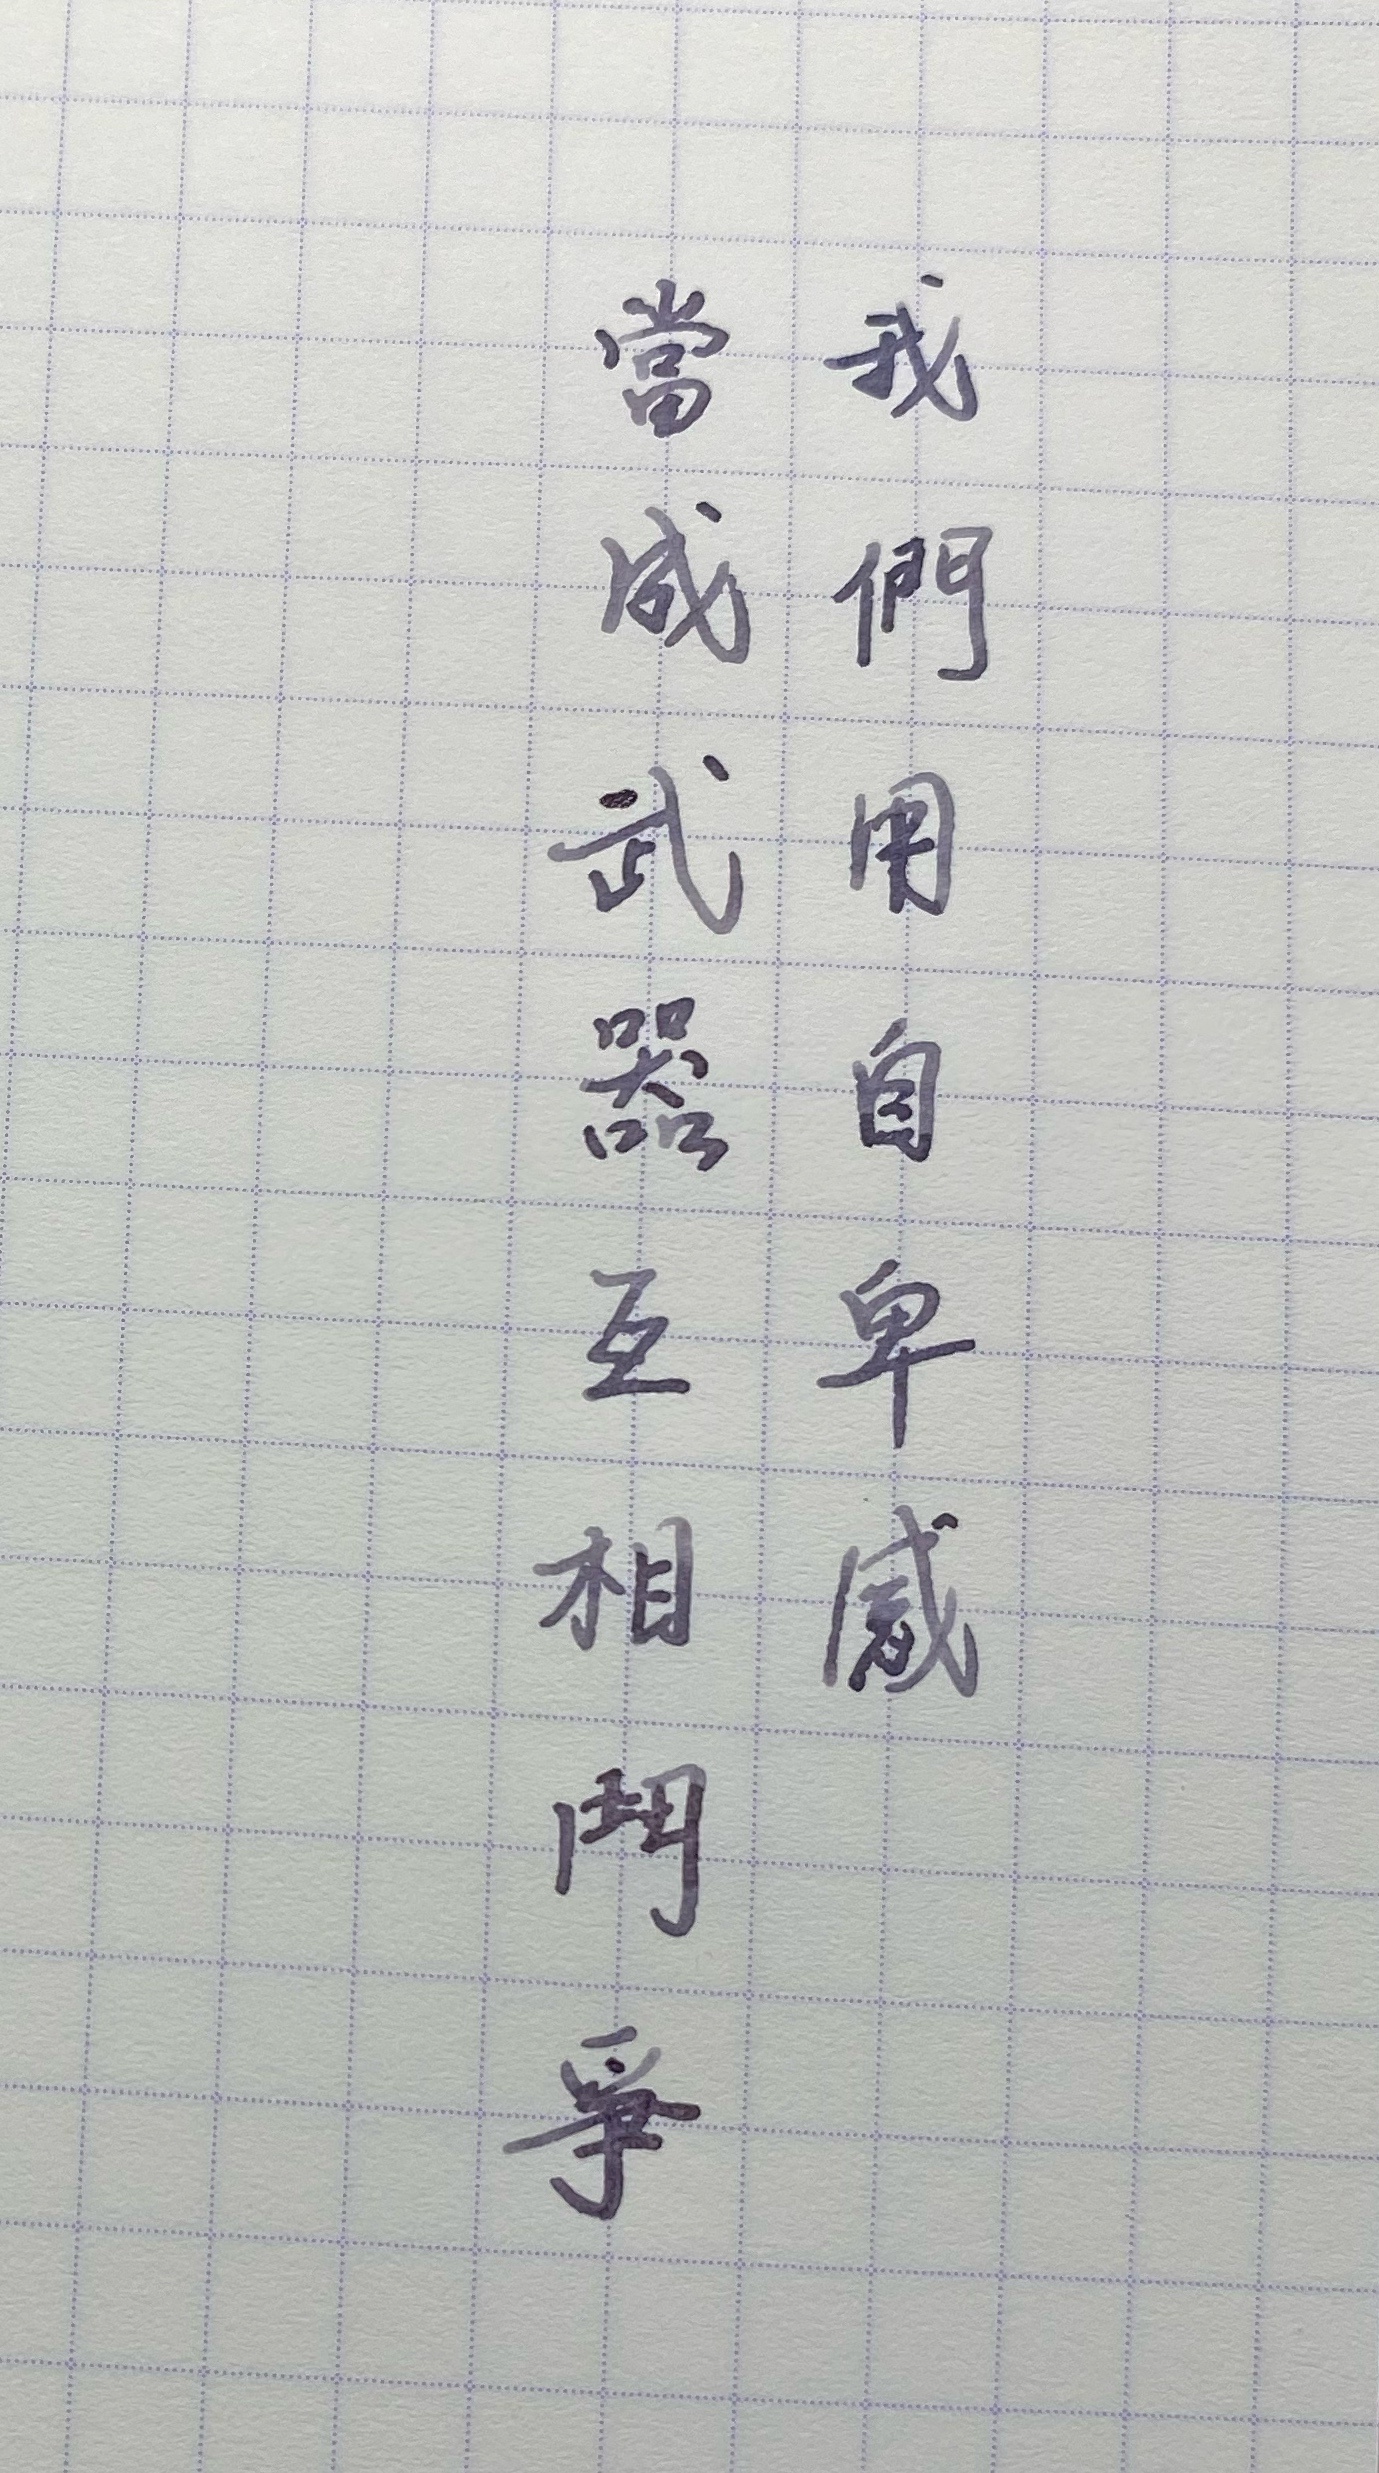 我們用自卑感
當成武器互相鬥爭